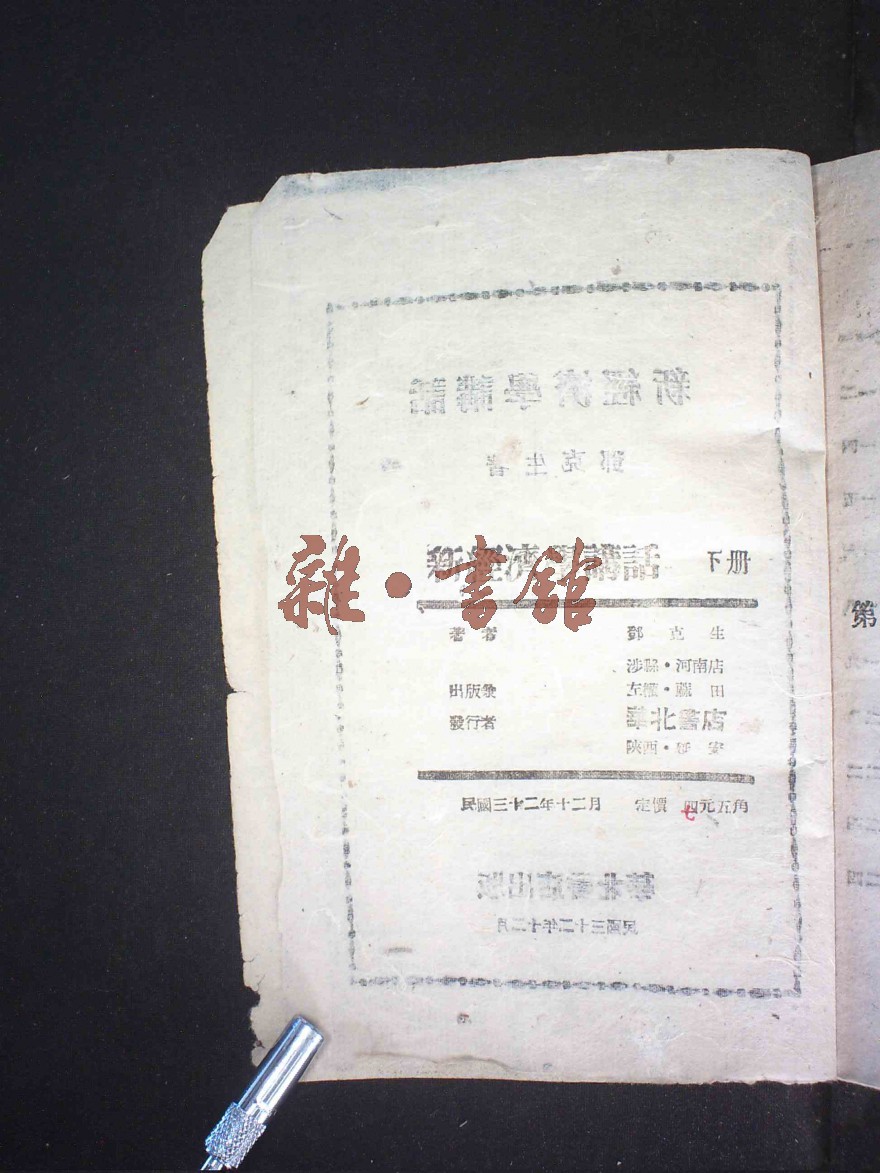 新經濟學講話
鄧克生著
新經濟學講話 下册
雜·書館
著者 鄧克生
涉縣·河南店
出版兼 左權·麻田
發行者 華北書店
陝西·延安
民國三十二年十二月 定價 四元五角
七
華北書店出版
民國三十二年十二月
第